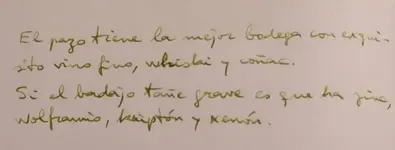 El pazo tiene la mejor bodega con exqui-
sito vino fino, whiski y coñac.
Si el badajo tañe grave es que ha zinc,
wolframio, kriptón y xenón.